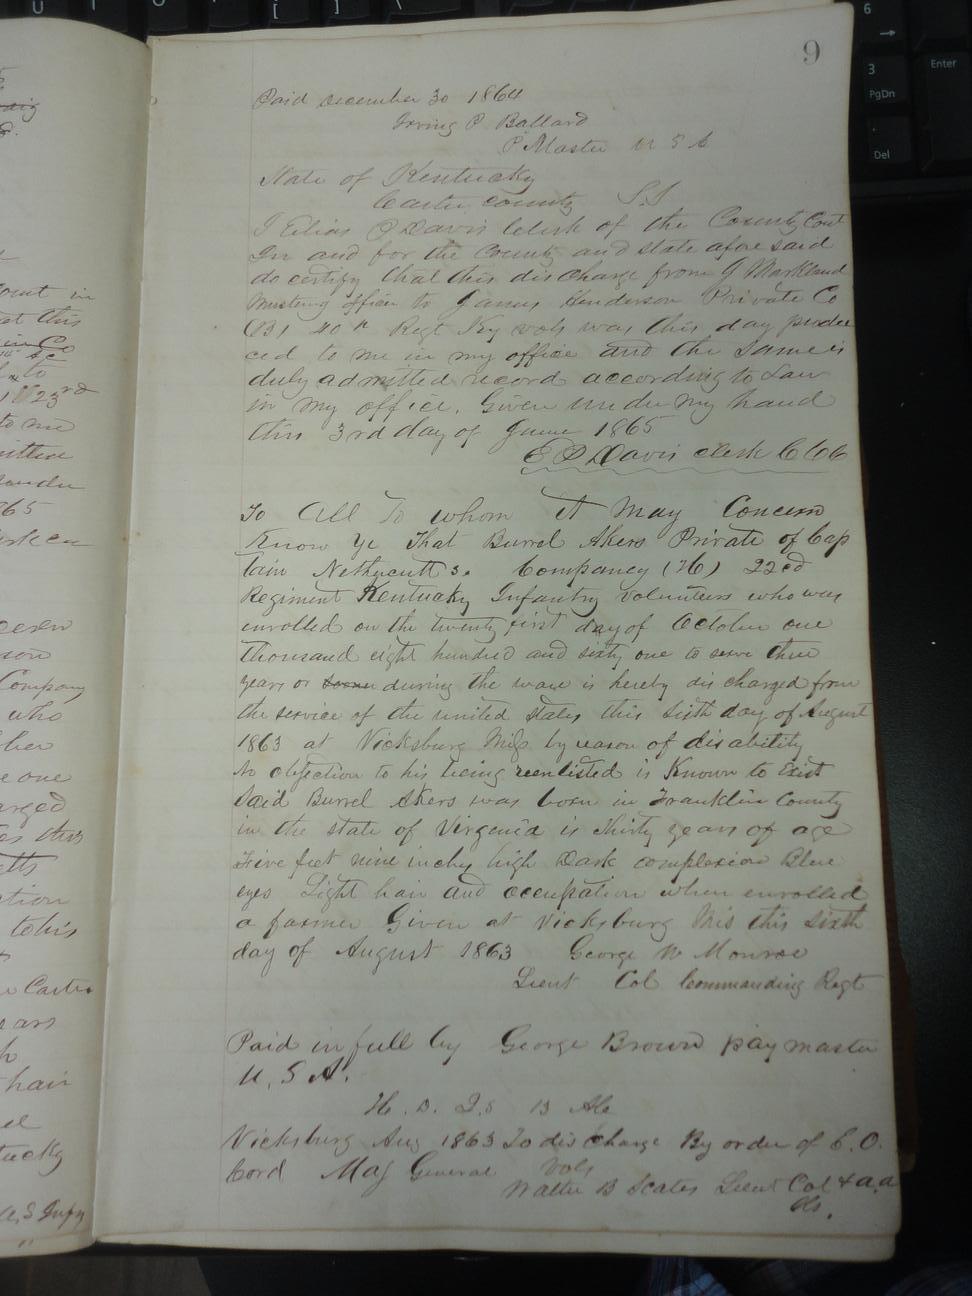 9
Paid December 30 1864
Irving P Ballard
P Master U S A
State of Kentucky
Carter County S.S
I Elias P Davis Clerk of the County Court
In and for the County and State afore said
do certify that this discharge from J Markland
Musting officer to James Henderson Private Co
(B) 40th Regt Ky vols was this day produ
ced to me in my office and the Same is
duly admitted record according to Law
in my office. Given under my hand
this 3rd day of June 1865
E P Davis clerk C C C
To All To whom it May Concern
Know Ye That Burrel Akers Private of Cap
tain Nethycutts. Compancy (H) 22ed
Regiment Kentucky Infantry volunteers who was
enrolled on the twenty first day of October one
thousand eight hundred and sixty one to serve three
years or during the ware is hereby discharged from
the service of the united states this sixth day of August
1863 at Vicksburg Miss by reason of disability
No objection to his being reenlisted is Known to Exist
Said Burrel Akers was born in Franklin County
in the state of Virginia is thirty years of age
Five feet nine inches high Dark complexion Blue
eyes Light hair and occupation when enrolled
a farmer Given at Vicksburg Mis this sixth
day of August 1863 George W Monroe
Lieut Col Commanding Regt
Paid in full by George Brown pay master
U. S A.
H. D. Q.s 13 AC
Vicksburg Aug 1863 To discharge By order of E. O.
Cord Maj General vols
Walter B Scates Lieut Col & a. a
Gl.
6
→
3
PgDn
Enter
.
Del
U
I
O
P
[
lout in
at this
in Co
to
23rd
to me
itted
under
65
Company
who
her
e one
arged
this
etts
ation
to his
Carter
ars
hair
tucky
U.S Infy
"